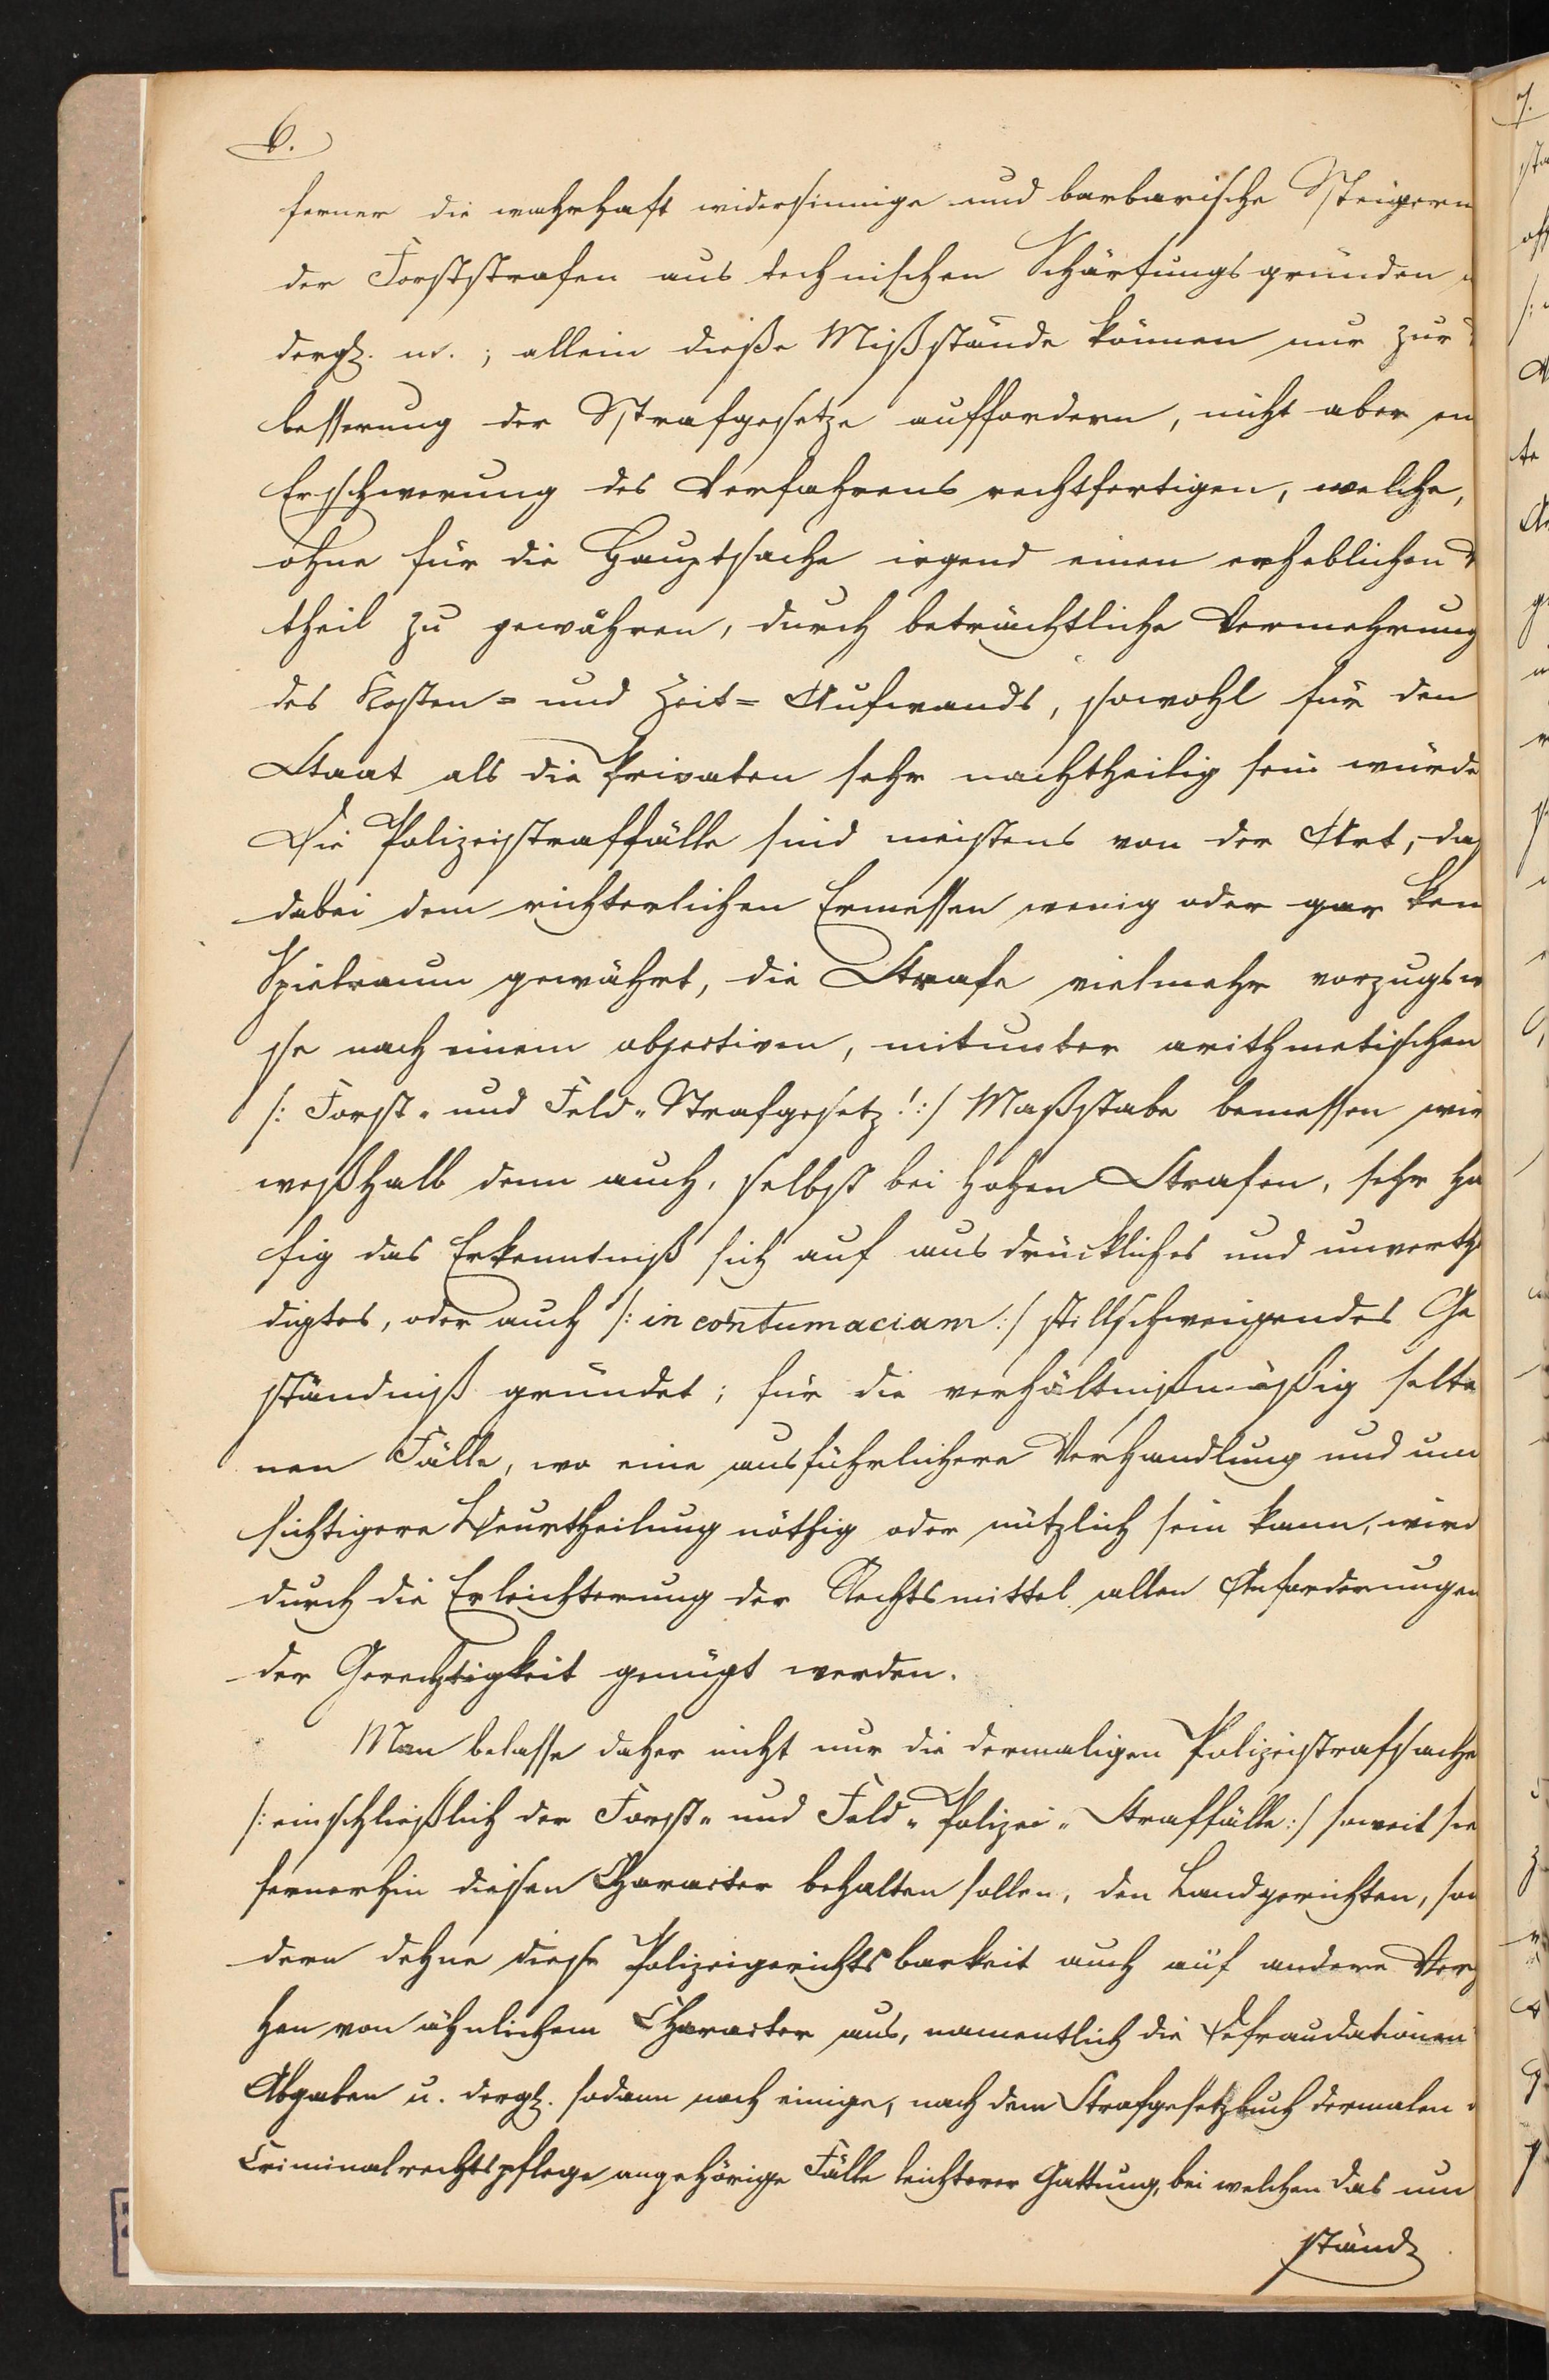 6.
ferner die wahrhaft widersinnige und barbarische Steigern
der Forststrafen aus technischen Schärfungsgründen u
dergl. m.; allein diese Mißstände können nur zur
besserung der Strafgesetze auffordern, nicht aber ein
Erschwerung des Verfahrens rechtfertigen, welche,
ohne für die Hauptsache irgend einen erheblichen
theil zu gewähren, durch beträchtliche Vermehrung
des Kosten= und Zeit= Aufwands, sowohl für den
Staat als die Privaten sehr nachtheilig sein würde
Die Polizeistraffälle sind meistens von der Art, daß
dabei dem richterlichen Ermessen wenig oder gar kein
Spielraum gewährt, die Strafe vielmehr vorzugswei
se nach einem objectiven, mitunter arithmetischen
/: Forst- und Feld-Strafgesetz!:/ Maßstabe bemessen wir
weßhalb denn auch, selbst bei hohen Strafen, sehr häu
fig das Erkenntniß sich auf ausdrückliches und unverthei
digtes, oder auch /: in contumaciam :/ stillschweigendes Ge
ständniß gründet; für die verhältnißmäßig selte
nen Fälle, wo eine ausführlichere Verhandlung und um
sichtigere Beurtheilung nöthig oder nützlich sein kann, wird
durch die Erleichterung der Rechtsmittel allen Anforderungen
der Gerechtigkeit genügt werden.
Man belasse daher nicht nur die dermaligen Polizeistrafsache
/: einschließlich der Forst- und Feld-Polizei-Straffälle :/ soweit sie
fernerhin diesen Character behalten sollen, den Landgerichten, son
dern dehne diese Polizeigerichtsbarkeit auch auf andere Verge
hen von ähnlichem Character aus, namentlich die Defraudationen
Abgaben u. dergl. sodann noch einige, nach dem Strafgesetzbuch dermalen d
Criminalrechtspflege angehörige Fälle leichterer Gattung, bei welchen das um
ständl